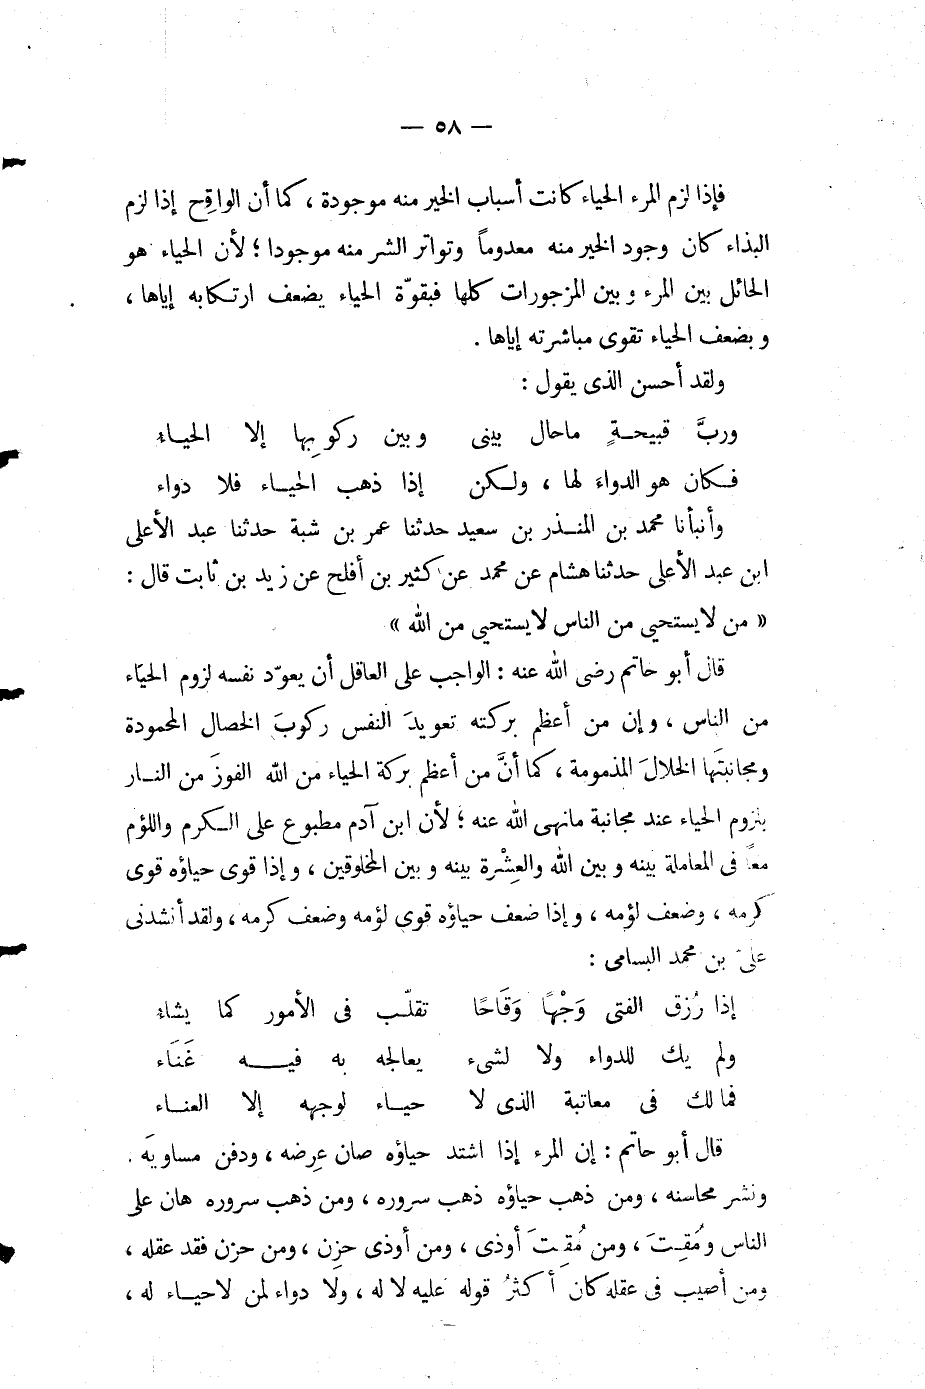 — ٥٨ —
فإذا لزم المرء الحياء كانت أسباب الخير منه موجودة ، كما أن الواقِح إذا لزم
البذاء كان وجود الخير منه معدوماً وتواتر الشر منه موجودا ؛ لأن الحياء هو
الحائل بين المرء وبين المزجورات كلها فبقوّة الحياء يضعف ارتكابه إياها ،
وبضعف الحياء تقوى مباشرته إياها .
ولقد أحسن الذى يقول :
وربَّ قبيحةٍ ماحال بينى وبين ركوبِها إلا الحياءُ
فكان هو الدواءَ لها ، ولكن إذا ذهب الحياء فلا دواء
وأنبأنا محمد بن المنذر بن سعيد حدثنا عمر بن شبة حدثنا عبد الأعلى
ابن عبد الأعلى حدثنا هشام عن محمد عن كثير بن أفلح عن زيد بن ثابت قال :
« من لايستحيى من الناس لايستحيى من الله »
قال أبو حاتم رضى الله عنه : الواجب على العاقل أن يعوّد نفسه لزوم الحياء
من الناس ، وإن من أعظم بركته تعويدَ النفس ركوبَ الخصال المحمودة
ومجانبتَها الخلالَ المذمومة ، كما أنَّ من أعظم بركة الحياء من الله الفوزَ من النار
بلزوم الحياء عند مجانبة مانهى الله عنه ؛ لأن ابن آدم مطبوع على الكرم واللؤم
معًا فى المعاملة بينه وبين الله والعِشْرة بينه وبين المخلوقين ، وإذا قوى حياؤه قوى
كرمه ، وضعف لؤمه ، وإذا ضعف حياؤه قوى لؤمه وضعف كرمه ، ولقد أنشدنى
علىّ بن محمد البسامى :
إذا رُزق الفتى وَجْهًا وَقَاحًا تقلّب فى الأمور كما يشاءُ
ولم يك للدواء ولا لشىء يعالجه به فيه غَنَاء
فمالك فى معاتبة الذى لا حياء لوجهه إلا العناء
قال أبو حاتم : إن المرء إذا اشتد حياؤه صان عِرضه ، ودفن مساويَه .
ونشر محاسنه ، ومن ذهب حياؤه ذهب سروره ، ومن ذهب سروره هان على
الناس ومُقِتَ ، ومن مُقِتَ أوذى ، ومن أوذى حزِن ، ومن حزن فقد عقله ،
ومن أصيب فى عقله كان أكثرُ قوله عليه لا له ، ولا دواء لمن لاحياء له ،